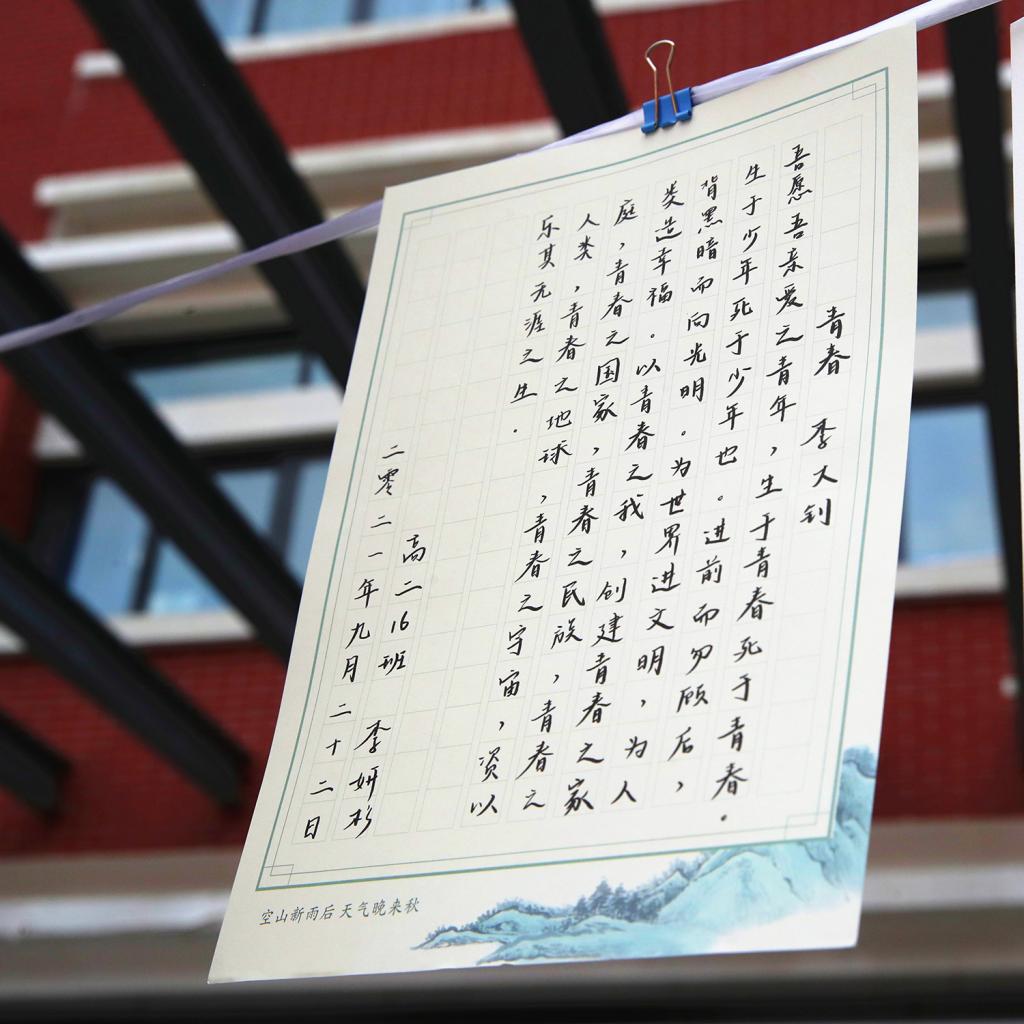 青春 李大钊
吾愿吾亲爱之青年，生于青春死于青春。
生于少年死于少年也。进前而勿顾后，
背黑暗而向光明。为世界进文明，为人
类造幸福。以青春之我，创建青春之家
庭，青春之国家，青春之民族，青春之
人类，青春之地球，青春之宇宙，资以
乐其无涯之生.
高二16班 李妍杉
二零二一年九月二十二日
空山新雨后 天气晚来秋